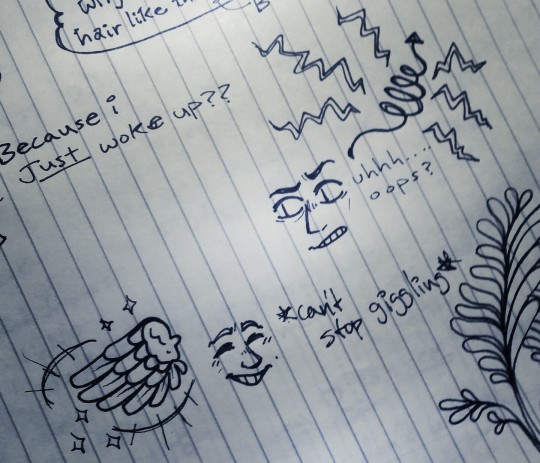 hair like
Because i
Just woke up??
uhhh....
oops?
*can't
stop giggling*